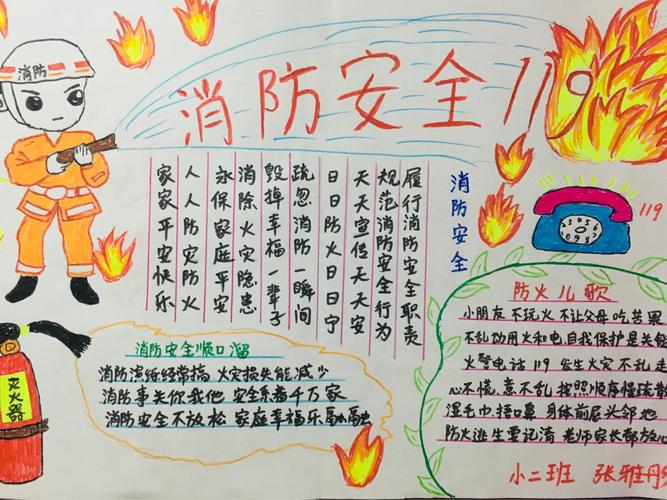 消防安全119
消防
消防安全
119
履行消防安全职责
规范消防安全行为
天天宣传天天安
日日防火日日宁
疏忽消防一瞬间
毁掉幸福一辈子
消除火灾隐患
永保家庭平安
人人防灾防火
家家平安快乐
灭火器
消防安全顺口溜
消防演练经常搞 火灾损失能减少
消防事关你我他 安全系着千万家
消防安全不放松 家庭幸福乐融融
防火儿歌
小朋友 不玩火 不让父母吃苦果
不乱动用火和电 自我保护是关
火警电话119 发生火灾不乱走
心不慌,意不乱 按照顺序慢疏
湿毛巾,捂口鼻 身体前屈头邻地
防火逃生要记清 老师家长都放心
小二班 张雅